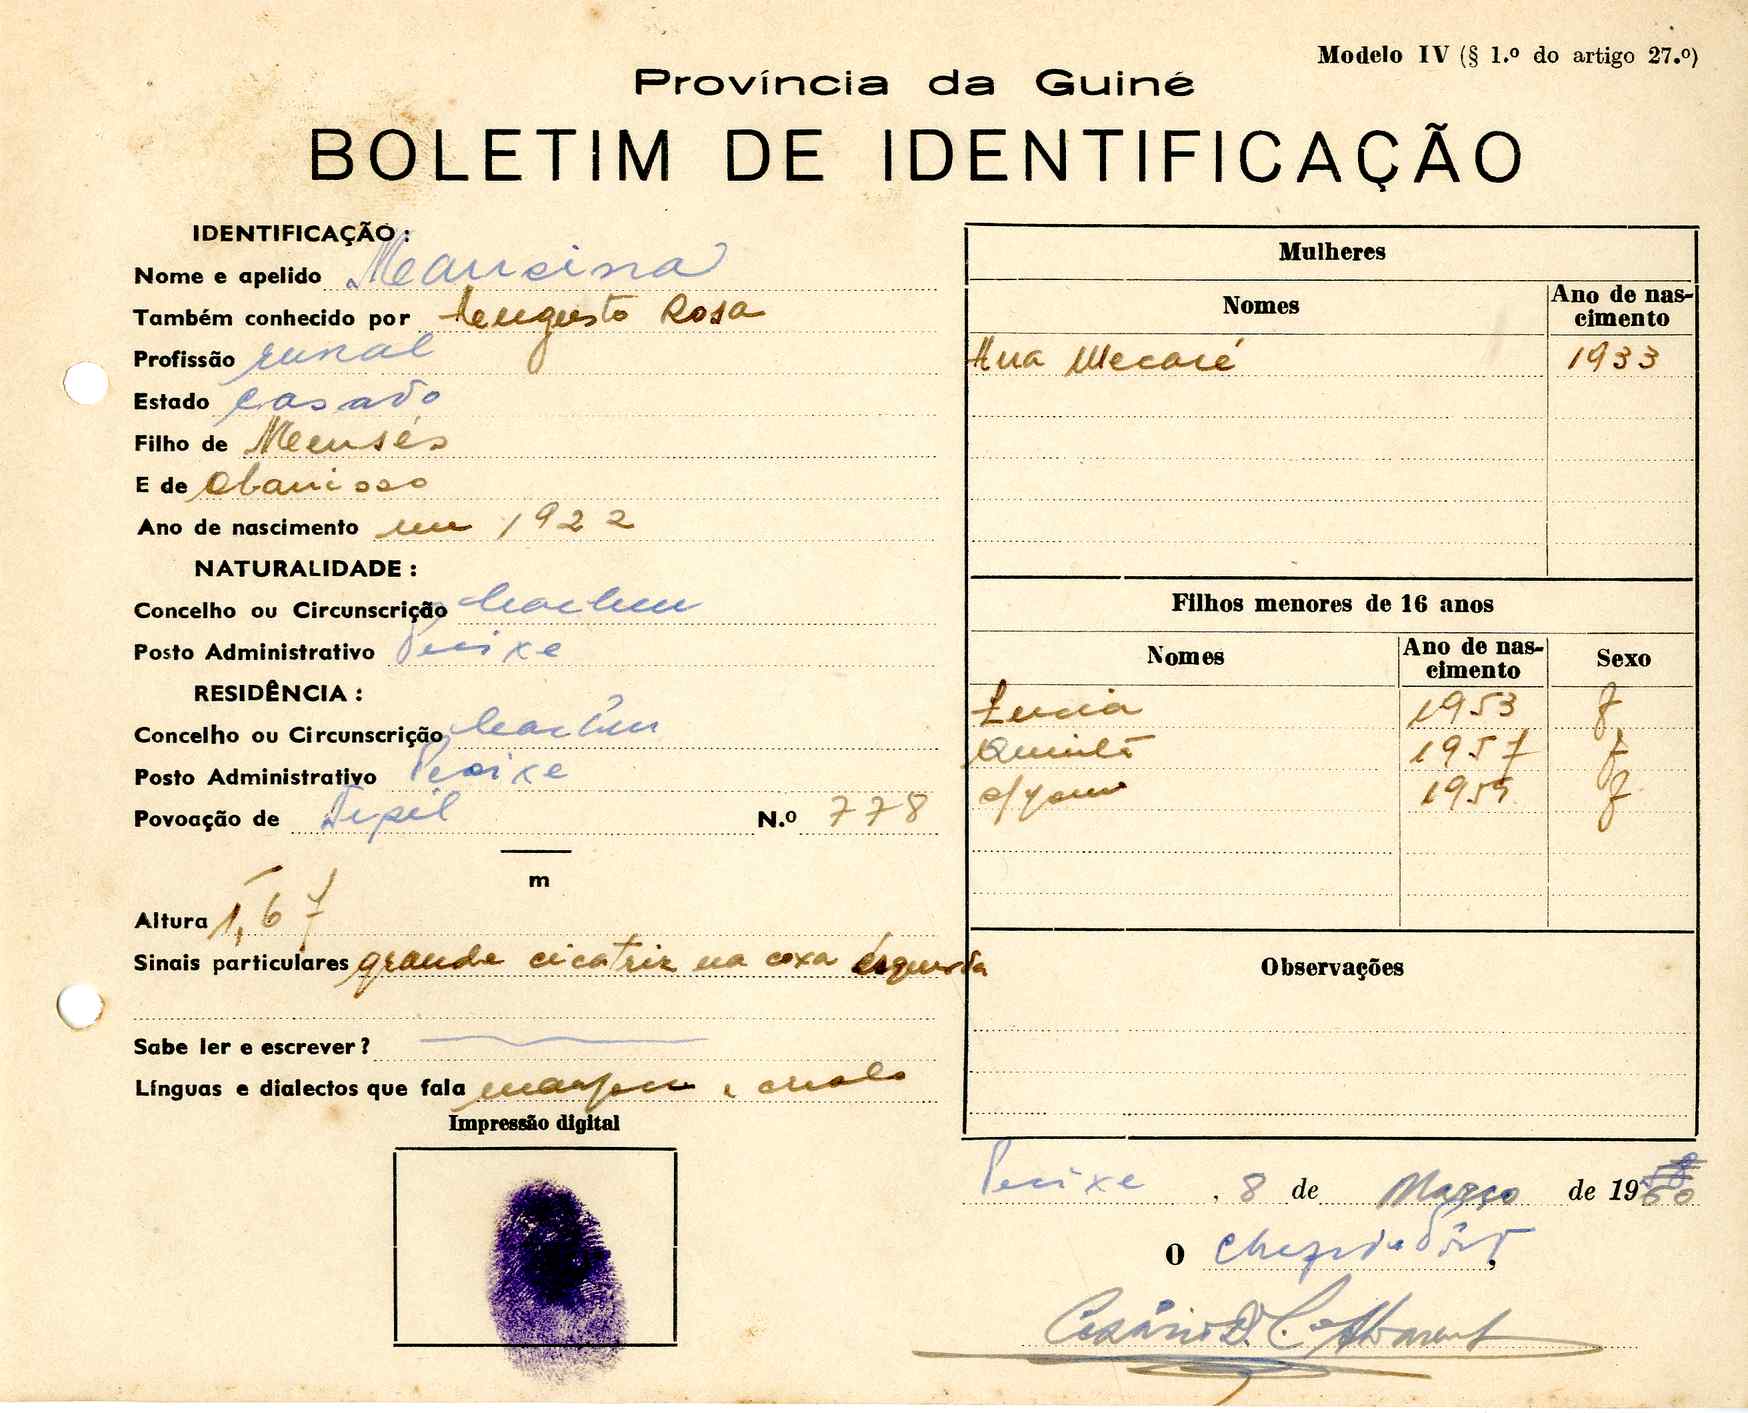 Modelo IV (§ 1.º do artigo 27.º)
Província da Guiné
BOLETIM DE IDENTIFICAÇÃO
IDENTIFICAÇÃO:
Nome e apelido Mansina
Também conhecido por Augusto Rosa
Profissão rural
Estado casado
Filho de
E de
Ano de nascimento em 1922
NATURALIDADE:
Concelho ou Circunscrição Cacheu
Posto Administrativo Pecixe
RESIDÊNCIA:
Concelho ou Circunscrição Cacheu
Posto Administrativo Pecixe
Povoação de N.º 778
m
Altura 1,67
Sinais particulares grande cicatriz na coxa esquerda
Sabe ler e escrever?
Línguas e dialectos que fala e
Impressão digital
Mulheres
Nomes Ano de nas-
cimento
Ana 1933
Filhos menores de 16 anos
Nomes Ano de nas-
cimento Sexo
Lucia 1953 f
Quintã 1957 f
1959 f
Observações
Pecixe, 8 de Março de 1960
O Chefe do Pôsto,